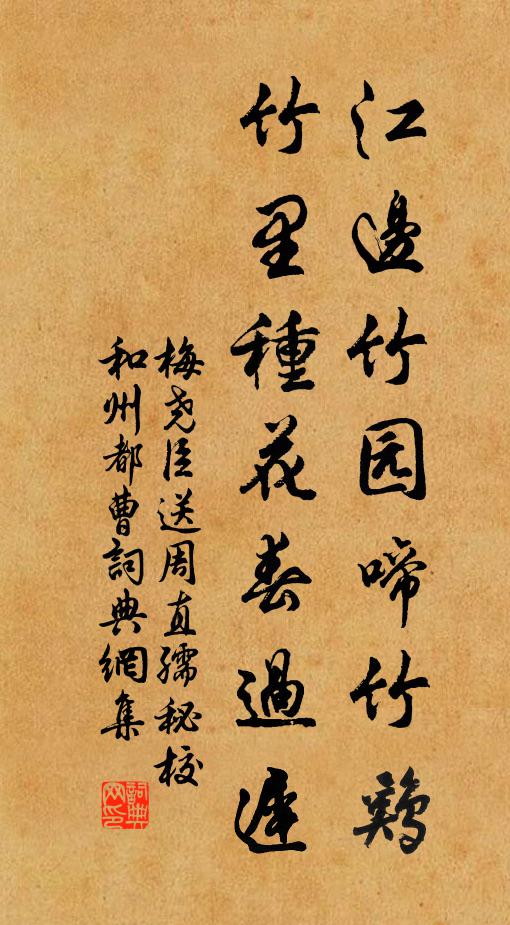 江邊竹园啼竹鷄
竹里種花春過遲
梅尧臣送周直孺秘校
和州都曹詞典網集
詞典网印